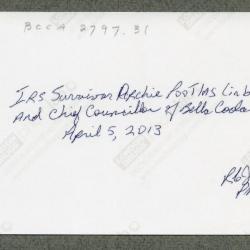 BCCA 2797.31
IRS Survivor Archie Pootlas
And Chief Councillor of Bella Coola
April 5, 2013